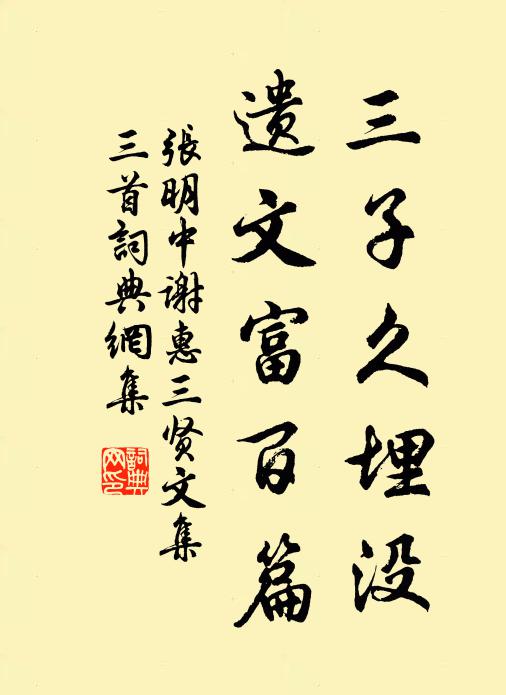 三子久埋没
遗文富百篇
張明中谢惠三贤文集
三首詞典網集
詞典网印